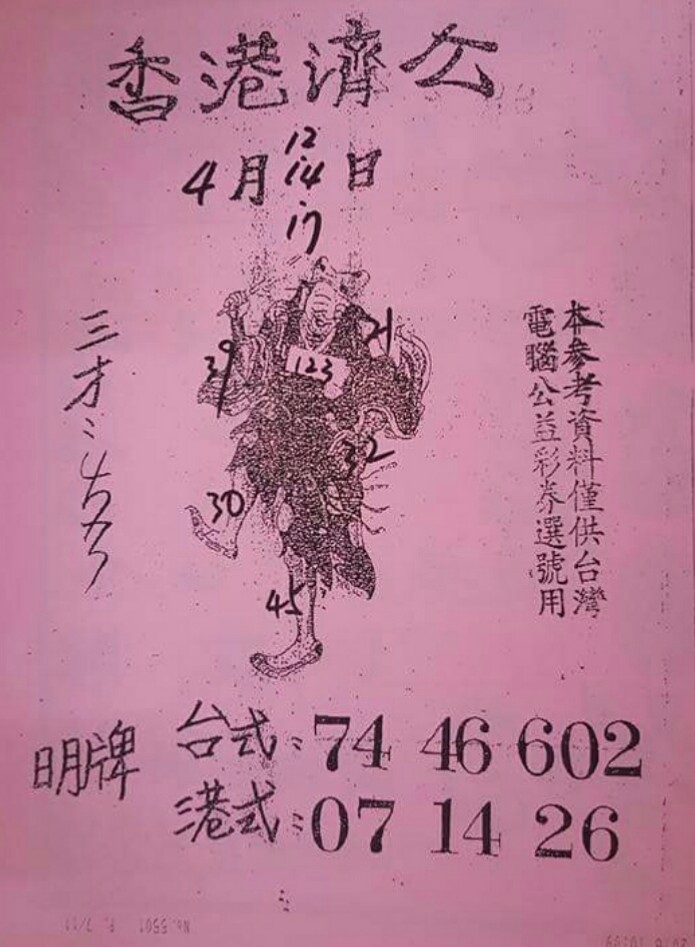 香港濟公
4月 12 日
14
17
本參考資料僅供台灣
電腦公益彩券選號用
三才:
21
39
123
32
30
45
明牌
台式:74 46 602
港式:07 14 26